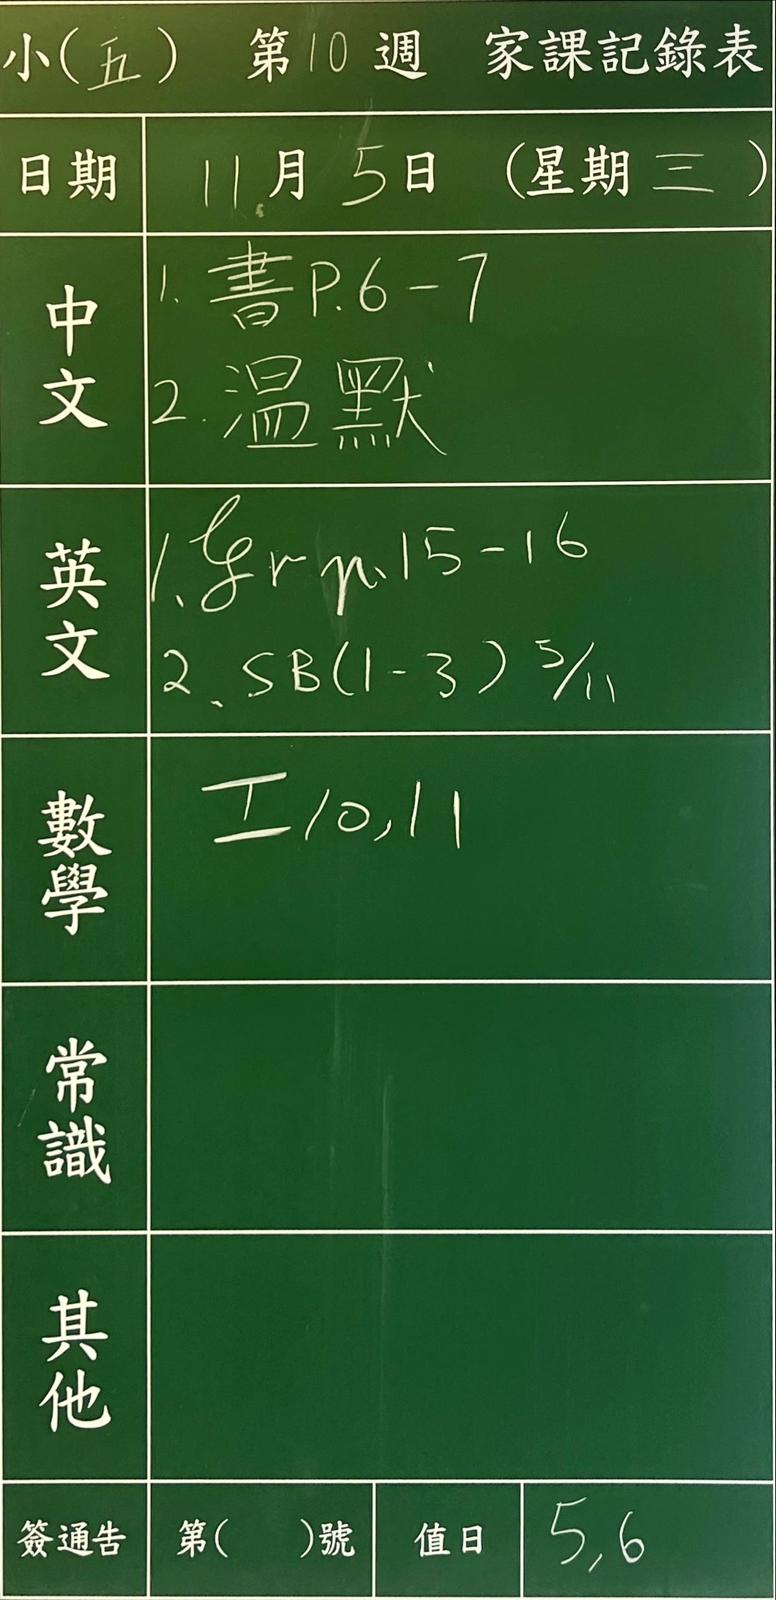 小(五) 第10週 家課記錄表
日期 11月5日 (星期三)
中文
1. 書P.6-7
2. 溫默
英文
1. Gr p.15-16
2. SB(1-3) 5/11
數學
工10,11
常識
其他
簽通告 第( )號 值日 5,6